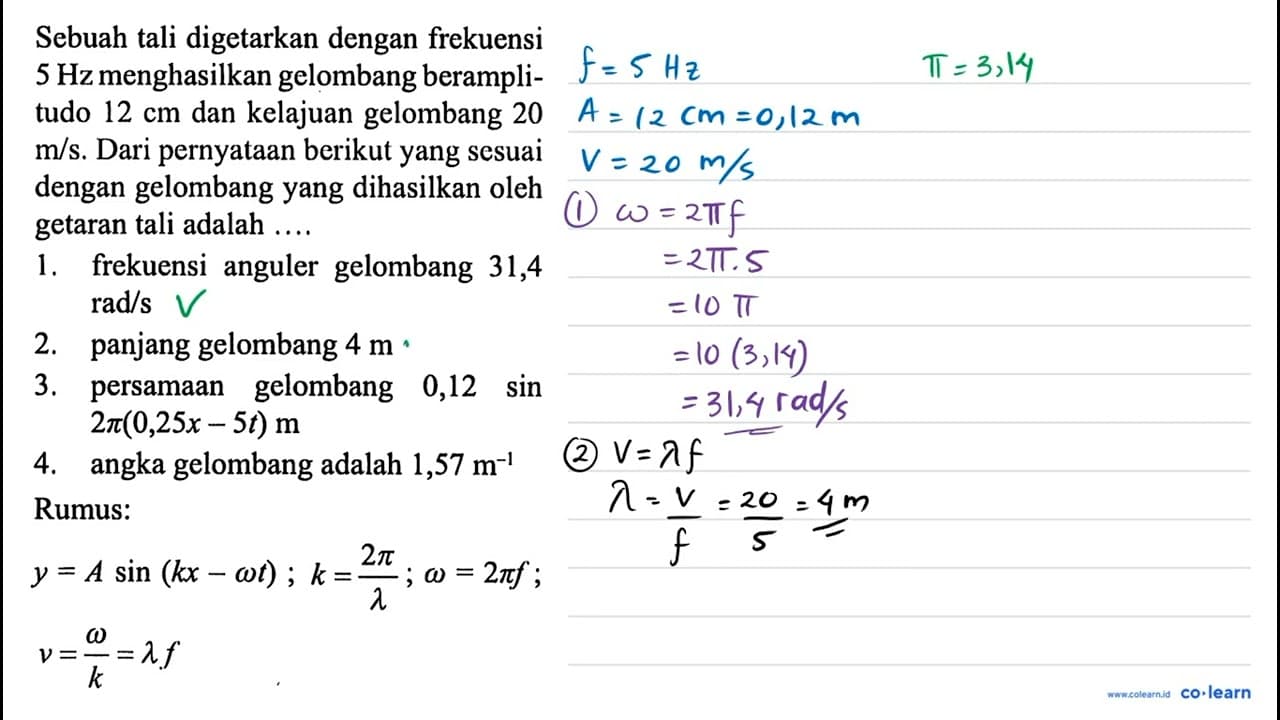 Sebuah tali digetarkan dengan frekuensi
5 Hz menghasilkan gelombang berampli-
tudo 12 cm dan kelajuan gelombang 20
m/s. Dari pernyataan berikut yang sesuai
dengan gelombang yang dihasilkan oleh
getaran tali adalah ....
1. frekuensi anguler gelombang 31,4
rad/s ✓
2. panjang gelombang 4 m
3. persamaan gelombang 0,12 sin
2π(0,25x – 5t) m
4. angka gelombang adalah 1,57 m⁻¹
Rumus:
y = A sin (kx – ωt) ; k = 2π/λ ; ω = 2πf ;
v = ω/k = λf
f = 5 Hz
A = 12 cm = 0,12 m
V = 20 m/s
π = 3,14
① ω = 2πf
= 2π.5
= 10 π
= 10 (3,14)
= 31,4 rad/s
② V = λf
λ = V/f = 20/5 = 4 m
www.colearn.id co·learn